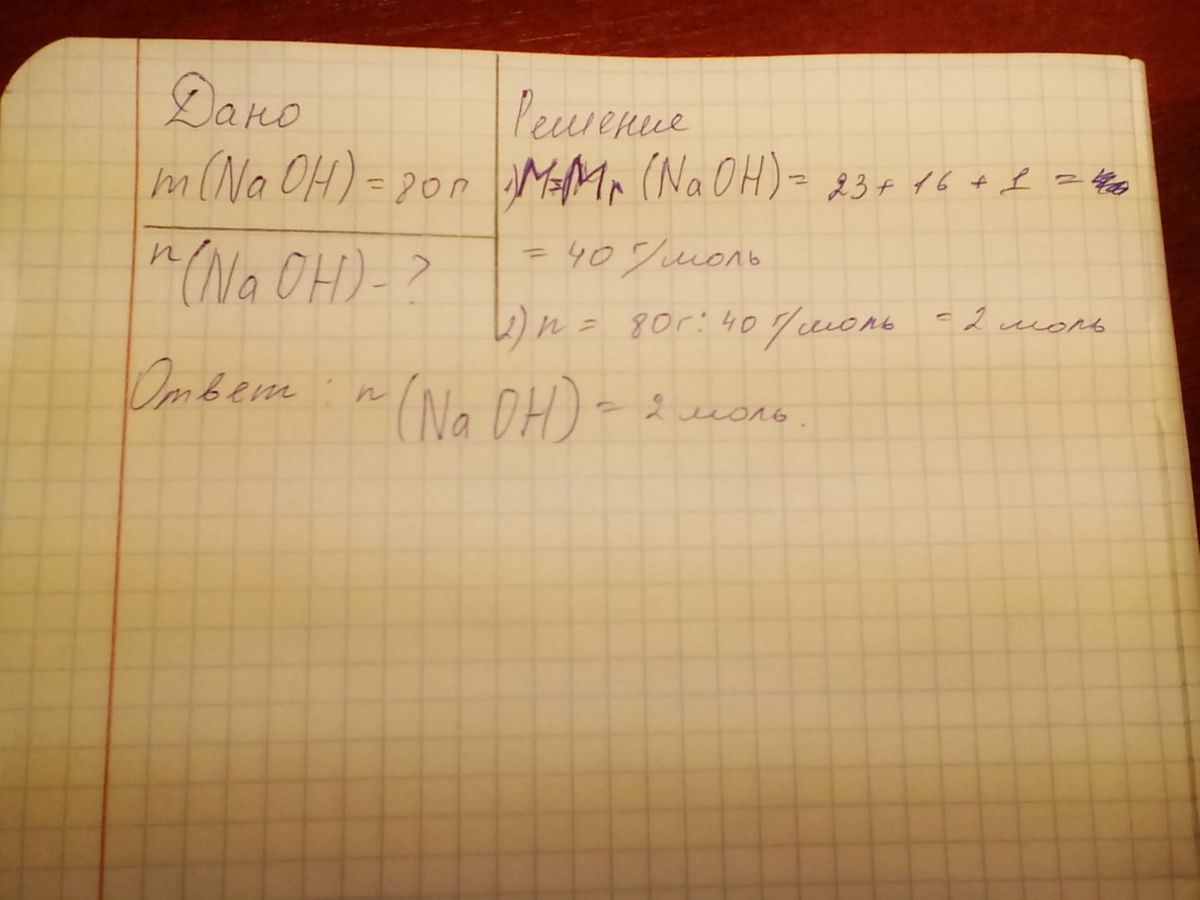 Дано
m(NaOH) = 80г
n(NaOH) - ?
Решение
1) M=Mr (NaOH) = 23 + 16 + 1 =
= 40 г/моль
2) n = 80г : 40 г/моль = 2 моль
Ответ : n (NaOH) = 2 моль.